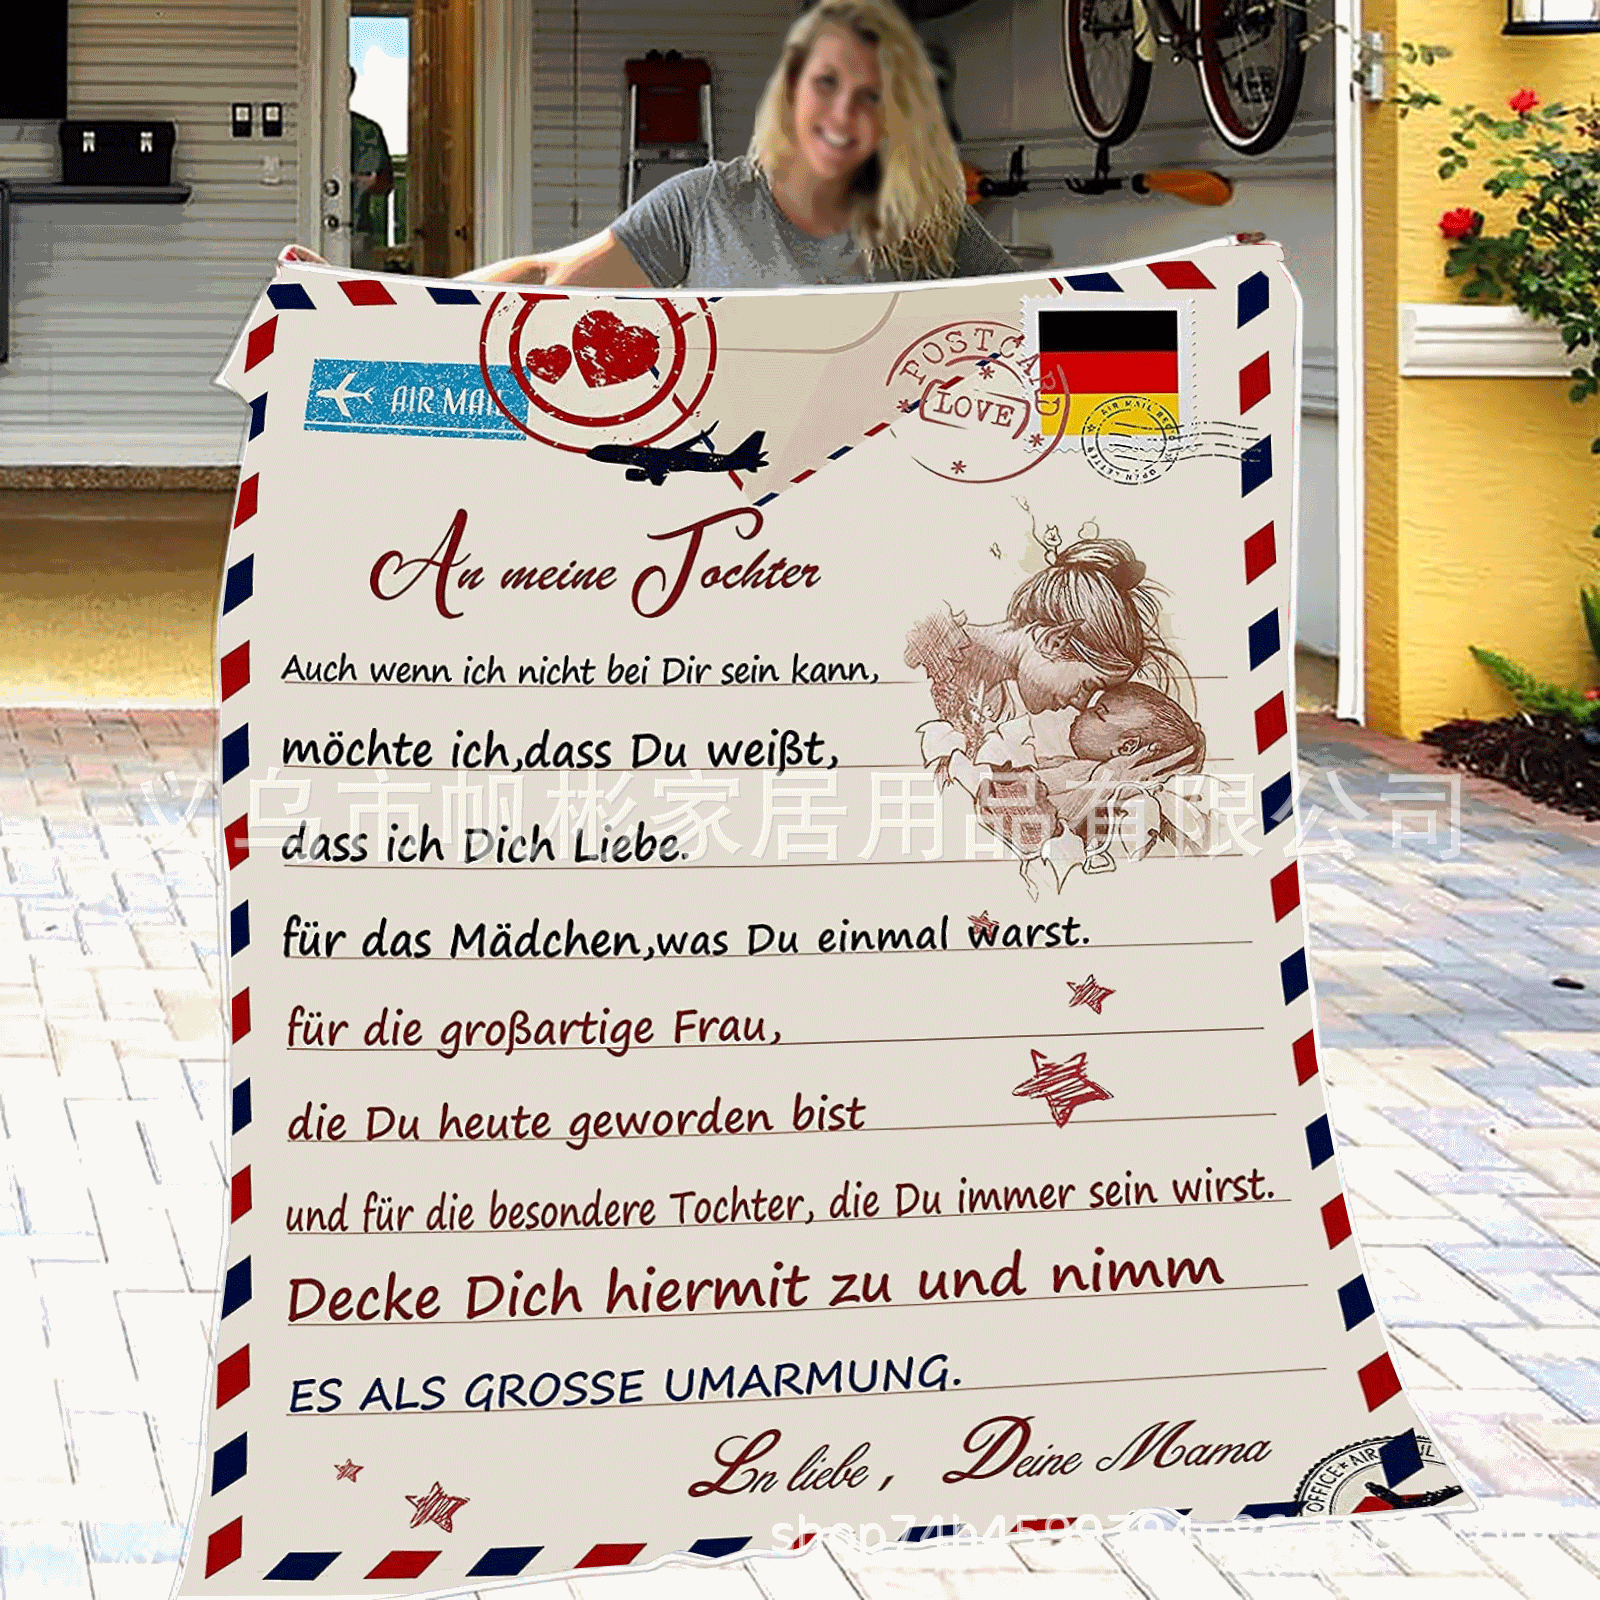 AIR MAIL
POSTCARD
LOVE
AIR MAIL
OPEN LETTER
An meine Tochter
Auch wenn ich nicht bei Dir sein kann,
möchte ich,dass Du weißt,
义乌市帆彬家居用品有限公司
dass ich Dich Liebe.
für das Mädchen,was Du einmal warst.
für die großartige Frau,
die Du heute geworden bist
und für die besondere Tochter, die Du immer sein wirst.
Decke Dich hiermit zu und nimm
ES ALS GROSSE UMARMUNG.
Ln liebe , Deine Mama
OFFICE★AIR MAIL